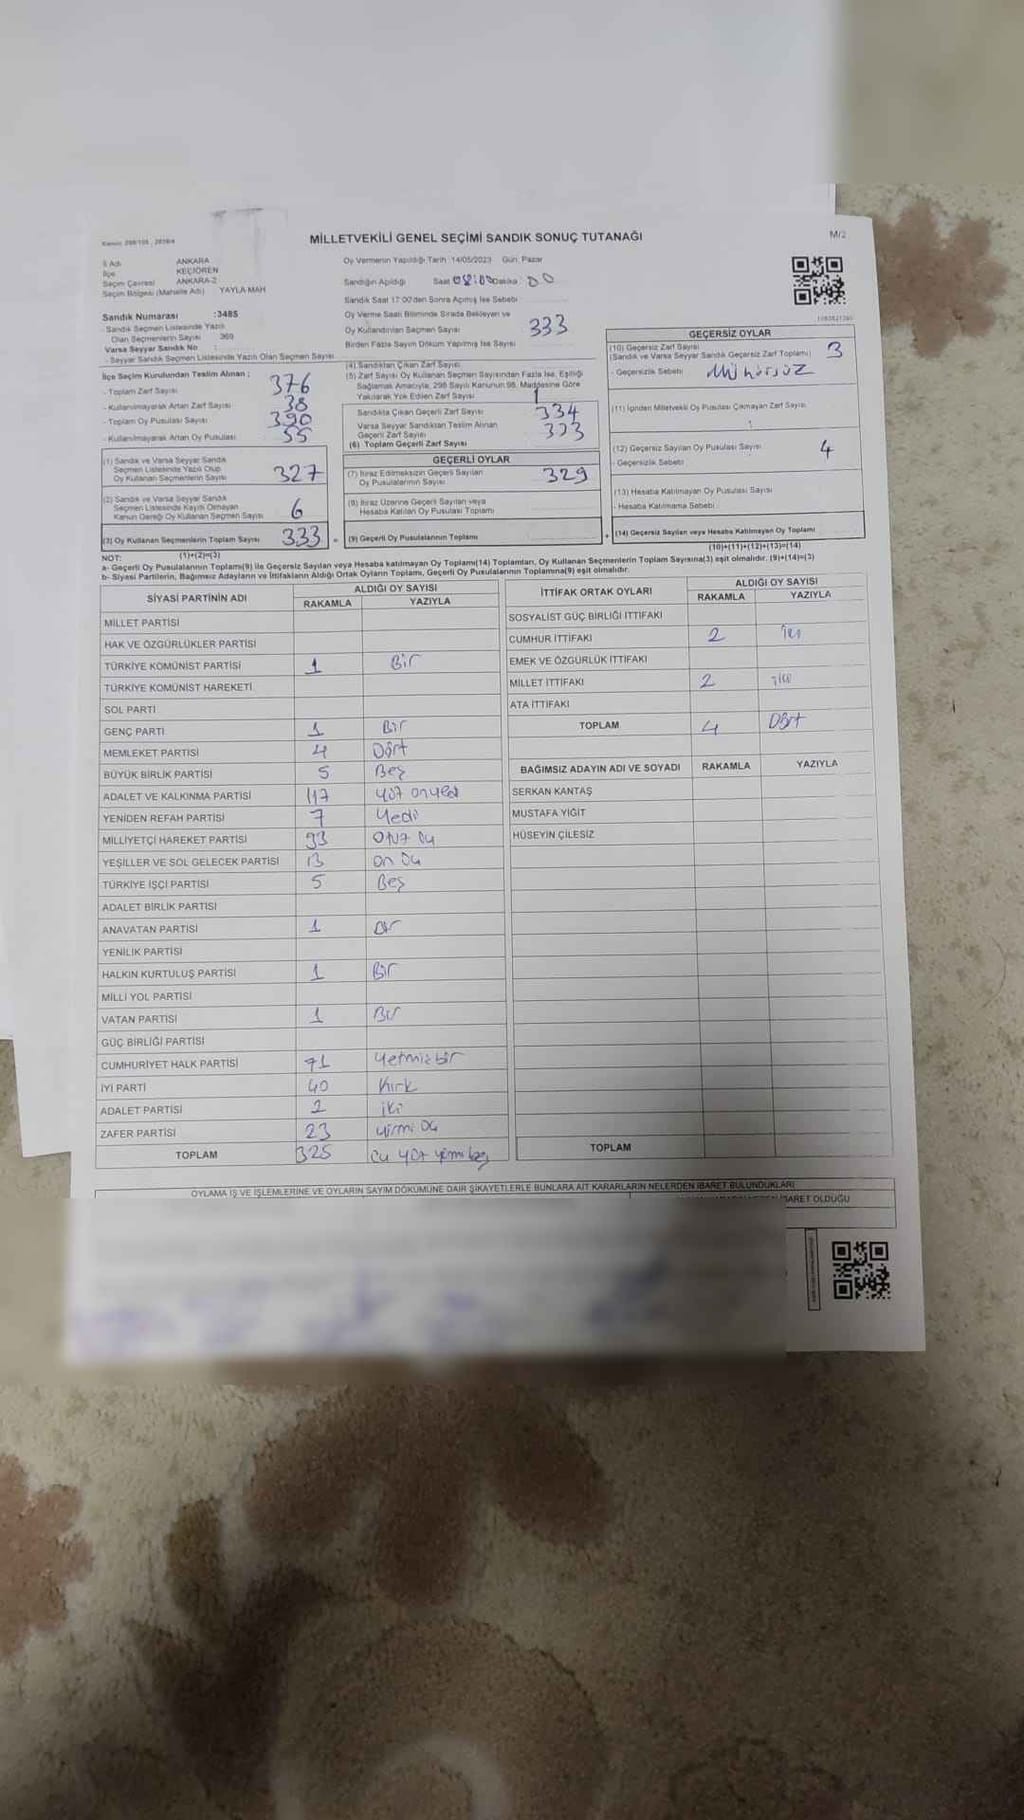 MİLLETVEKİLİ GENEL SEÇİMİ SANDIK SONUÇ TUTANAĞI
M/2
İl Adı ANKARA
İlçe KEÇİÖREN
Seçim Çevresi ANKARA-2
Seçim Bölgesi (Mahalle Adı) YAYLA MAH
Sandık Numarası :3485
- Sandık Seçmen Listesinde Yazılı
Olan Seçmenlerin Sayısı 369
Varsa Seyyar Sandık No :
- Seyyar Sandık Seçmen Listesinde Yazılı Olan Seçmen Sayısı
Oy Vermenin Yapıldığı Tarih :14/05/2023 Gün: Pazar
Sandığın Açıldığı Saat Dakika : 00
Sandık Saat 17:00'den Sonra Açılmış İse Sebebi
Oy Verme Saati Bitiminde Sırada Bekleyen ve
Oy Kullandırılan Seçmen Sayısı 333
Birden Fazla Sayım Döküm Yapılmış İse Sayısı
İlçe Seçim Kurulundan Teslim Alınan ;
- Toplam Zarf Sayısı 376
- Kullanılmayarak Artan Zarf Sayısı 38
- Toplam Oy Pusulası Sayısı 390
- Kullanılmayarak Artan Oy Pusulası 55
(1) Sandık ve Varsa Seyyar Sandık
Seçmen Listesinde Yazılı Olup
Oy Kullanan Seçmenlerin Sayısı 327
(2) Sandık ve Varsa Seyyar Sandık
Seçmen Listesinde Kayıtlı Olmayan
Kanun Gereği Oy Kullanan Seçmen Sayısı 6
(3) Oy Kullanan Seçmenlerin Toplam Sayısı 333
(1)+(2)=(3)
(4) Sandıktan Çıkan Zarf Sayısı
(5) Zarf Sayısı Oy Kullanan Seçmen Sayısından Fazla İse, Eşitliği
Sağlamak Amacıyla, 298 Sayılı Kanunun 98. Maddesine Göre
Yakılarak Yok Edilen Zarf Sayısı 1
Sandıkta Çıkan Geçerli Zarf Sayısı 334
Varsa Seyyar Sandıktan Teslim Alınan
Geçerli Zarf Sayısı 333
(6) Toplam Geçerli Zarf Sayısı
GEÇERLİ OYLAR
(7) İtiraz Edilmeksizin Geçerli Sayılan
Oy Pusulalarının Sayısı 329
(8) İtiraz Üzerine Geçerli Sayılan veya
Hesaba Katılan Oy Pusulası Toplamı
= (9) Geçerli Oy Pusulalarının Toplamı
GEÇERSİZ OYLAR
(10) Geçersiz Zarf Sayısı
(Sandık ve Varsa Seyyar Sandık Geçersiz Zarf Toplamı) 3
- Geçersizlik Sebebi Mühürsüz
(11) İçinden Milletvekili Oy Pusulası Çıkmayan Zarf Sayısı
(12) Geçersiz Sayılan Oy Pusulası Sayısı 4
- Geçersizlik Sebebi
(13) Hesaba Katılmayan Oy Pusulası Sayısı
- Hesaba Katılmama Sebebi
+ (14) Geçersiz Sayılan veya Hesaba Katılmayan Oy Toplamı
(10)+(11)+(12)+(13)=(14)
NOT:
a- Geçerli Oy Pusulalarının Toplamı(9) ile Geçersiz Sayılan veya Hesaba katılmayan Oy Toplamı(14) Toplamları, Oy Kullanan Seçmenlerin Toplam Sayısına(3) eşit olmalıdır. (9)+(14)=(3)
b- Siyasi Partilerin, Bağımsız Adayların ve İttifakların Aldığı Ortak Oyların Toplamı, Geçerli Oy Pusulalarının Toplamına(9) eşit olmalıdır.
SİYASİ PARTİNİN ADI ALDIĞI OY SAYISI
RAKAMLA YAZIYLA
MİLLET PARTİSİ
HAK VE ÖZGÜRLÜKLER PARTİSİ
TÜRKİYE KOMÜNİST PARTİSİ 1 Bir
TÜRKİYE KOMÜNİST HAREKETİ
SOL PARTİ
GENÇ PARTİ 1 Bir
MEMLEKET PARTİSİ 4 Dört
BÜYÜK BİRLİK PARTİSİ 5 Beş
ADALET VE KALKINMA PARTİSİ 117 yüz onyedi
YENİDEN REFAH PARTİSİ 7 Yedi
MİLLİYETÇİ HAREKET PARTİSİ 33 otuz üç
YEŞİLLER VE SOL GELECEK PARTİSİ 13 on üç
TÜRKİYE İŞÇİ PARTİSİ 5 Beş
ADALET BİRLİK PARTİSİ
ANAVATAN PARTİSİ 1 Bir
YENİLİK PARTİSİ
HALKIN KURTULUŞ PARTİSİ 1 Bir
MİLLİ YOL PARTİSİ
VATAN PARTİSİ 1 Bir
GÜÇ BİRLİĞİ PARTİSİ
CUMHURİYET HALK PARTİSİ 71 Yetmişbir
İYİ PARTİ 40 Kırk
ADALET PARTİSİ 2 iki
ZAFER PARTİSİ 23 yirmi üç
TOPLAM 325 üç yüz yirmi beş
İTTİFAK ORTAK OYLARI ALDIĞI OY SAYISI
RAKAMLA YAZIYLA
SOSYALİST GÜÇ BİRLİĞİ İTTİFAKI
CUMHUR İTTİFAKI 2 iki
EMEK VE ÖZGÜRLÜK İTTİFAKI
MİLLET İTTİFAKI 2 iki
ATA İTTİFAKI
TOPLAM 4 Dört
BAĞIMSIZ ADAYIN ADI VE SOYADI RAKAMLA YAZIYLA
SERKAN KANTAŞ
MUSTAFA YİĞİT
HÜSEYİN ÇİLESİZ
TOPLAM
OYLAMA İŞ VE İŞLEMLERİNE VE OYLARIN SAYIM DÖKÜMÜNE DAİR ŞİKAYETLERLE BUNLARA AİT KARARLARIN NELERDEN İBARET BULUNDUKLARI
İBARET OLDUĞU